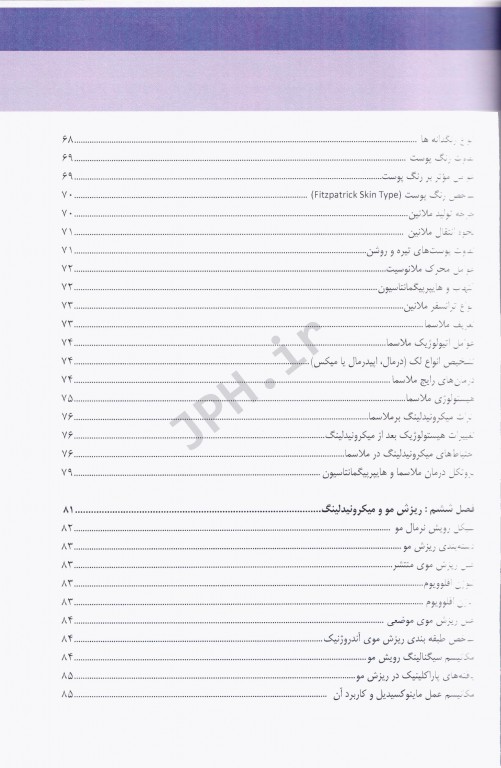 رنگدانه ها ۶۸
تفاوت رنگ پوست ۶۹
عوامل مؤثر بر رنگ پوست ۶۹
شاخص رنگ پوست (Fitzpatrick Skin Type) ۷۰
تولید ملانین ۷۰
نحوه انتقال ملانین ۷۱
تفاوت پوست‌های تیره و روشن ۷۱
عوامل محرک ملانوسیت ۷۲
التهاب و هایپرپیگمانتاسیون ۷۲
انواع ترانسفر ملانین ۷۳
تعریف ملاسما ۷۳
عوامل اتیولوژیک ملاسما ۷۴
تشخیص انواع لک (درمال، اپیدرمال یا میکس) ۷۴
درمان‌های رایج ملاسما ۷۴
هیستولوژی ملاسما ۷۵
اثرات میکرونیدلینگ برملاسما ۷۶
تغییرات هیستولوژیک بعد از میکرونیدلینگ ۷۶
احتیاط‌های میکرونیدلینگ در ملاسما ۷۶
پروتکل درمان ملاسما و هایپرپیگمانتاسیون ۷۹
فصل ششم : ریزش مو و میکرونیدلینگ ۸۱
سیکل رویش نرمال مو ۸۲
دسته‌بندی ریزش مو ۸۳
ریزش موی منتشر ۸۳
افلوویوم ۸۳
افلوویوم ۸۳
ریزش موی موضعی ۸۴
شاخص طبقه بندی ریزش موی آندروژنیک ۸۴
مکانیسم سیگنالینگ رویش مو ۸۴
یافته‌های پاراکلینیک در ریزش مو ۸۵
مکانیسم عمل ماینوکسیدیل و کاربرد آن ۸۵
JPH.ir